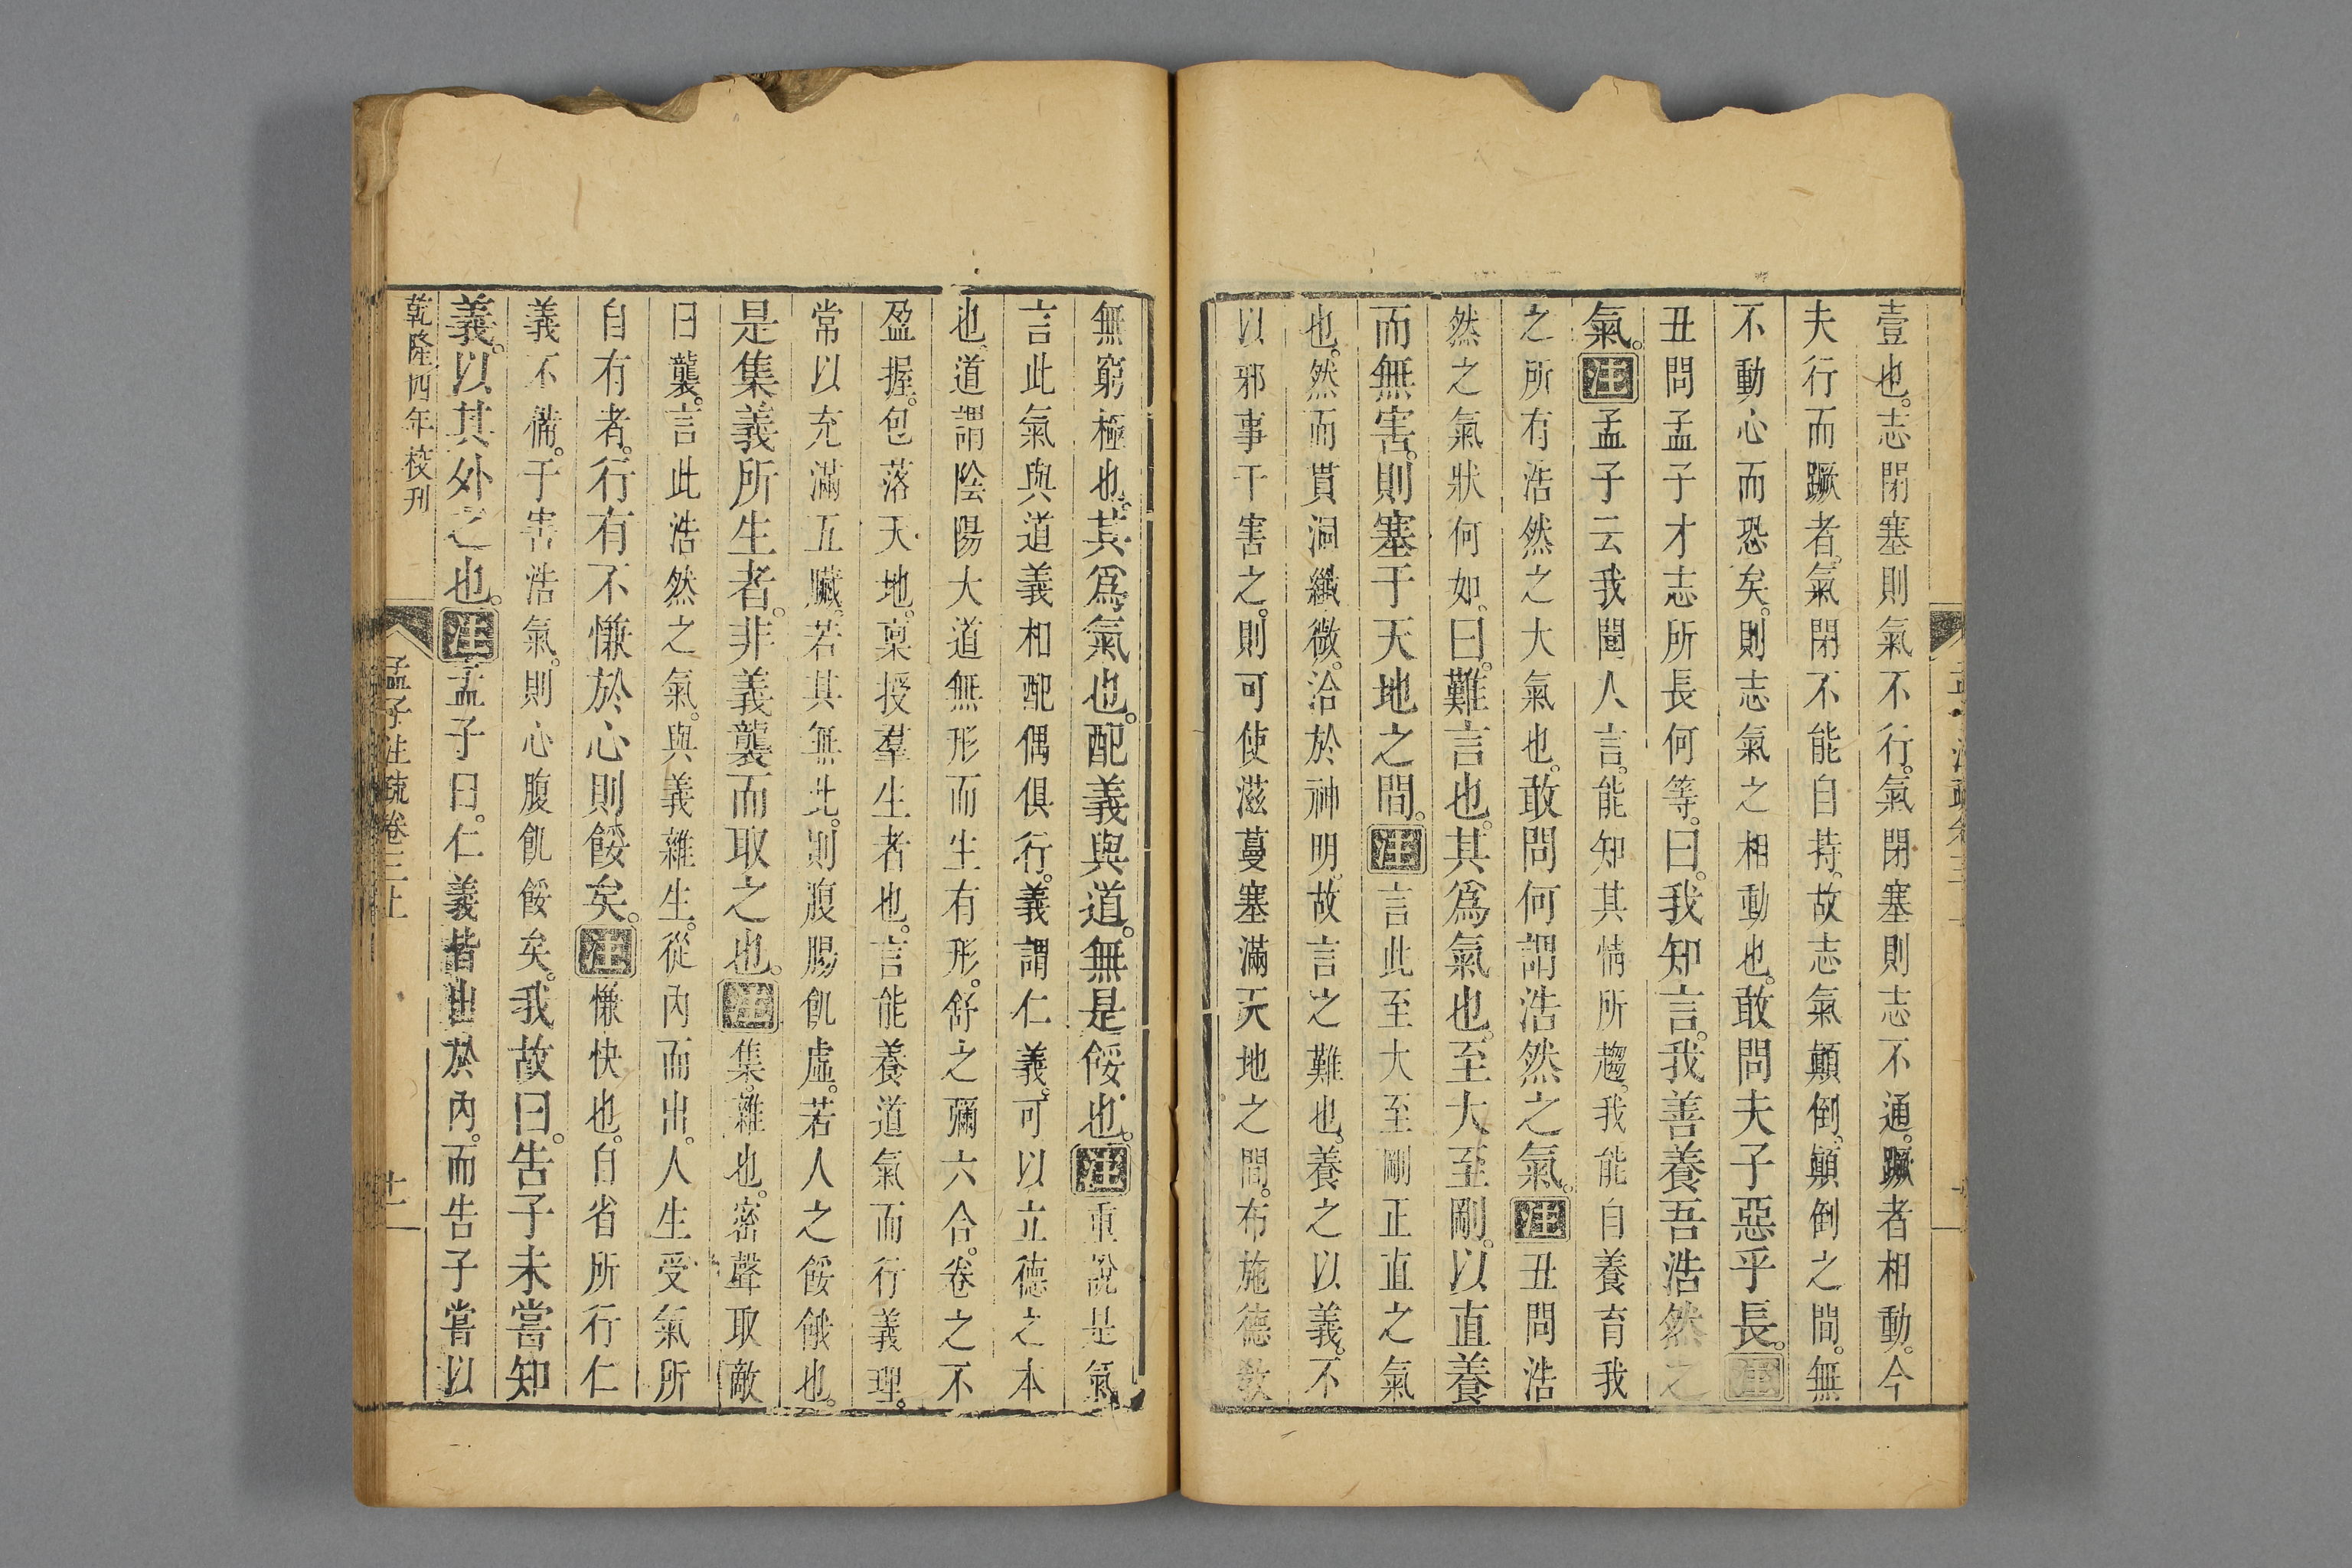 壹也。志閉塞則氣不行。氣閉塞則志不通。蹶者相動。今
夫行而蹶者。氣閉不能自持。故志氣顛倒。顛倒之間。無
不動心而恐矣。則志氣之相動也。敢問夫子惡乎長。注
丑問孟子才志所長何等。曰。我知言。我善養吾浩然之
氣。注孟子云我聞人言。能知其情所趨。我能自養育我
之所有浩然之大氣也。敢問何謂浩然之氣。注丑問浩
然之氣狀何如。曰。難言也。其爲氣也。至大至剛。以直養
而無害。則塞于天地之間。注言此至大至剛正直之氣
也。然而貫洞纖微。洽於神明。故言之難也。養之以義。不
以邪事干害之。則可使滋蔓塞滿天地之間。布施德教
無窮極也。其爲氣也。配義與道。無是餒也。注重說是氣
言此氣與道義相配偶俱行。義謂仁義。可以立德之本
也。道謂陰陽大道無形而生有形。舒之彌六合。卷之不
盈握。包落天地。稟授羣生者也。言能養道氣而行義理。
常以充滿五臟。若其無此。則腹腸飢虛。若人之餒餓也。
是集義所生者。非義襲而取之也。注集。雜也。密聲取敵
曰襲。言此浩然之氣。與義雜生。從內而出。人生受氣所
自有者。行有不慊於心則餒矣。注慊快也。自省所行仁
義不備。于害浩氣。則心腹飢餒矣。我故曰。告子未嘗知
義。以其外之也。注孟子曰。仁義皆出於內。而告子嘗以
乾隆四年校刊
孟子注疏卷三上
十一